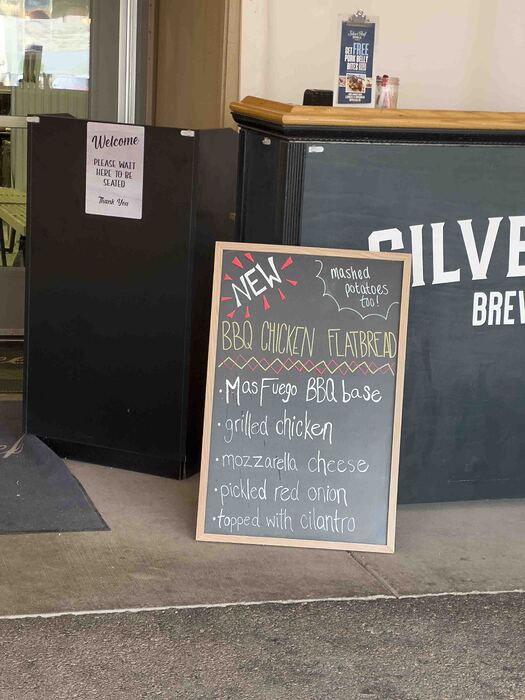 Welcome
PLEASE WAIT
HERE TO BE
SEATED
Thank You
GET FREE
PORK BELLY
BITES
SILVE
BREW
NEW
mashed
potatoes
too!
BBQ CHICKEN FLATBREAD
• Mas Fuego BBQ base
• grilled chicken
• mozzarella cheese
• pickled red onion
• topped with cilantro